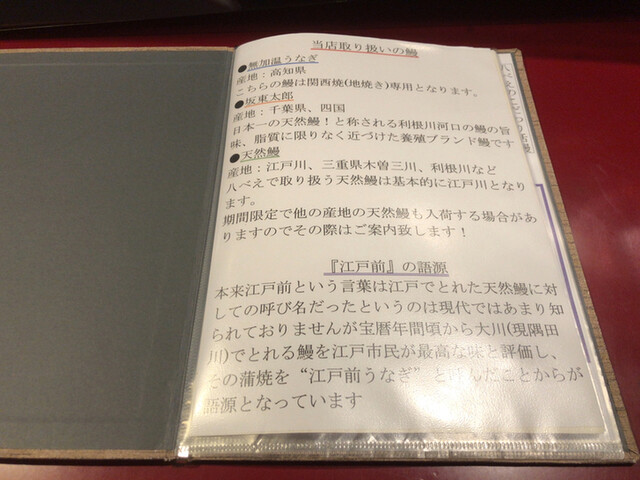 当店取り扱いの鰻
●無加温うなぎ
産地：高知県
こちらの鰻は関西焼(地焼き)専用となります。
●坂東太郎
産地：千葉県、四国
日本一の天然鰻！と称される利根川河口の鰻の旨
味、脂質に限りなく近づけた養殖ブランド鰻です
●天然鰻
産地：江戸川、三重県木曽三川、利根川など
八べえで取り扱う天然鰻は基本的に江戸川となり
ます。
期間限定で他の産地の天然鰻も入荷する場合があ
りますのでその際はご案内致します！
『江戸前』の語源
本来江戸前という言葉は江戸でとれた天然鰻に対
しての呼び名だったというのは現代ではあまり知
られておりませんが宝暦年間頃から大川(現隅田
川)でとれる鰻を江戸市民が最高な味と評価し、
その蒲焼を“江戸前うなぎ”と呼んだことからが
語源となっています